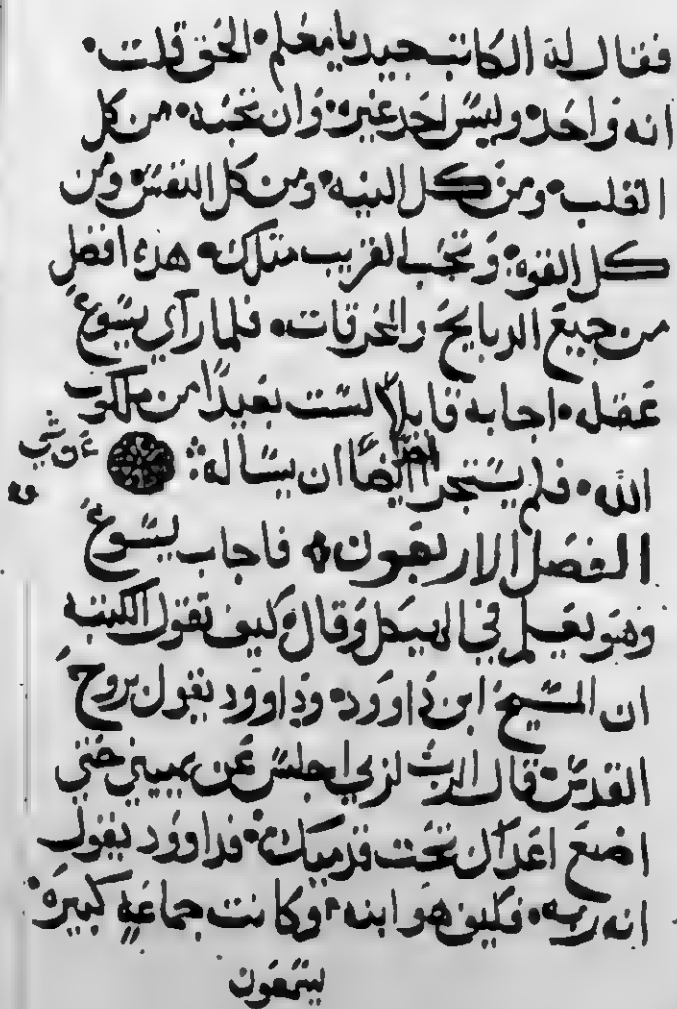 فقال له الكاتب جيد يا معلم • الحق قلت •
انه واحد • وليس احد غيره • وان تحبه • من كل
القلب • ومن كل النيه • ومن كل النفس • ومن
كل القوه • وتحب القريب مثلك • هذه افضل
من جميع الدبايح والمحرقات • فلما رآي يسوع
عقله • اجابه قايلاً لست بعيدًا من ملكوت
الله • فلم يستجر ايضًا ان يساله ∴ عن شي
الفصل الاربعون • فاجاب يسوع
وهو يعلم في الهيكل وقال • كيف تقول الكتبه
ان المسيح ابن داوود • وداوود يقول بروح
القدس • قال الرب لربي اجلس عن يميني حتي
اضع اعداك تحت قدميك • فداوود يقول
انه ربه • فكيف هو ابنه • وكانت جماعة كبيره •
يسمعون